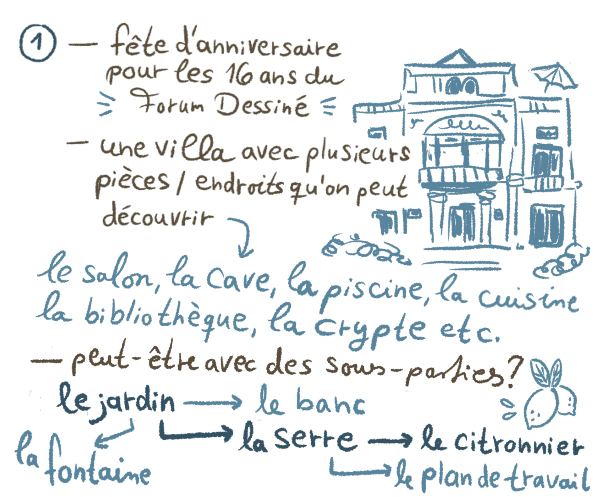 1 — fête d'anniversaire
pour les 16 ans du
Forum Dessiné
— une villa avec plusieurs
pièces / endroits qu'on peut
découvrir
le salon, la cave, la piscine, la cuisine
la bibliothèque, la crypte etc.
— peut-être avec des sous-parties?
le jardin → le banc
la fontaine
la serre → le citronnier
le plan de travail